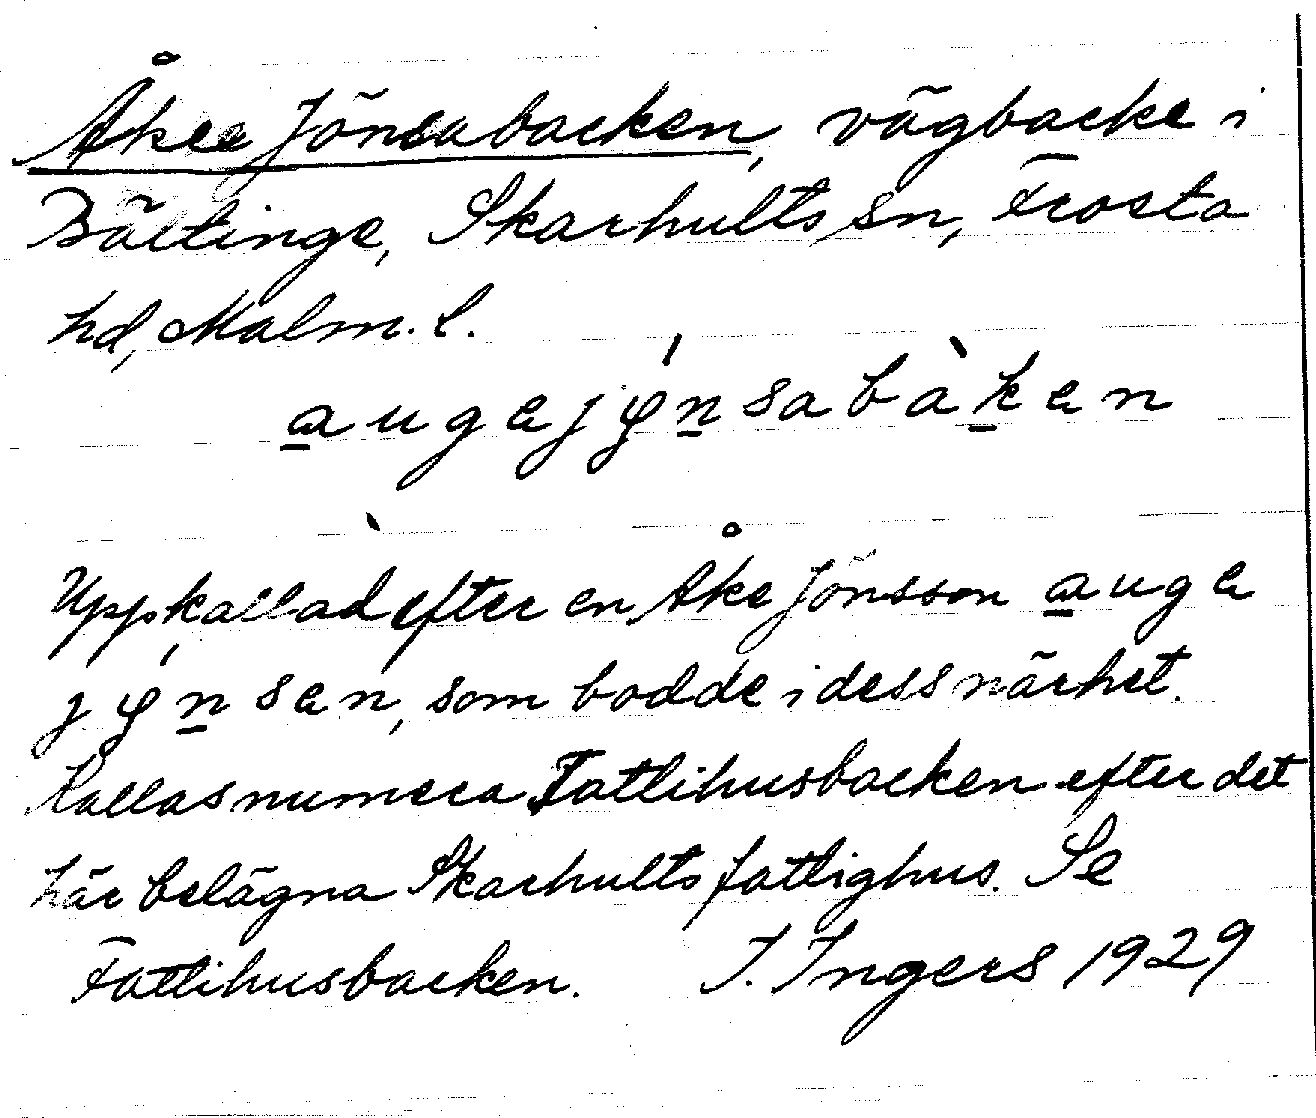 Åke Jönsabacken, vägbacke i
Böltinge, Skarhults sn, Frosta
hd, Malm. l.
augajφ́nsabàken
Uppkallad efter en Åke Jönsson auga
jφ́nsen, som bodde i dess närhet.
Kallas numera Fattihusbacken efter det
här belägna Skarhults fattighus. Se
Fattihusbacken. I. Ingers 1929